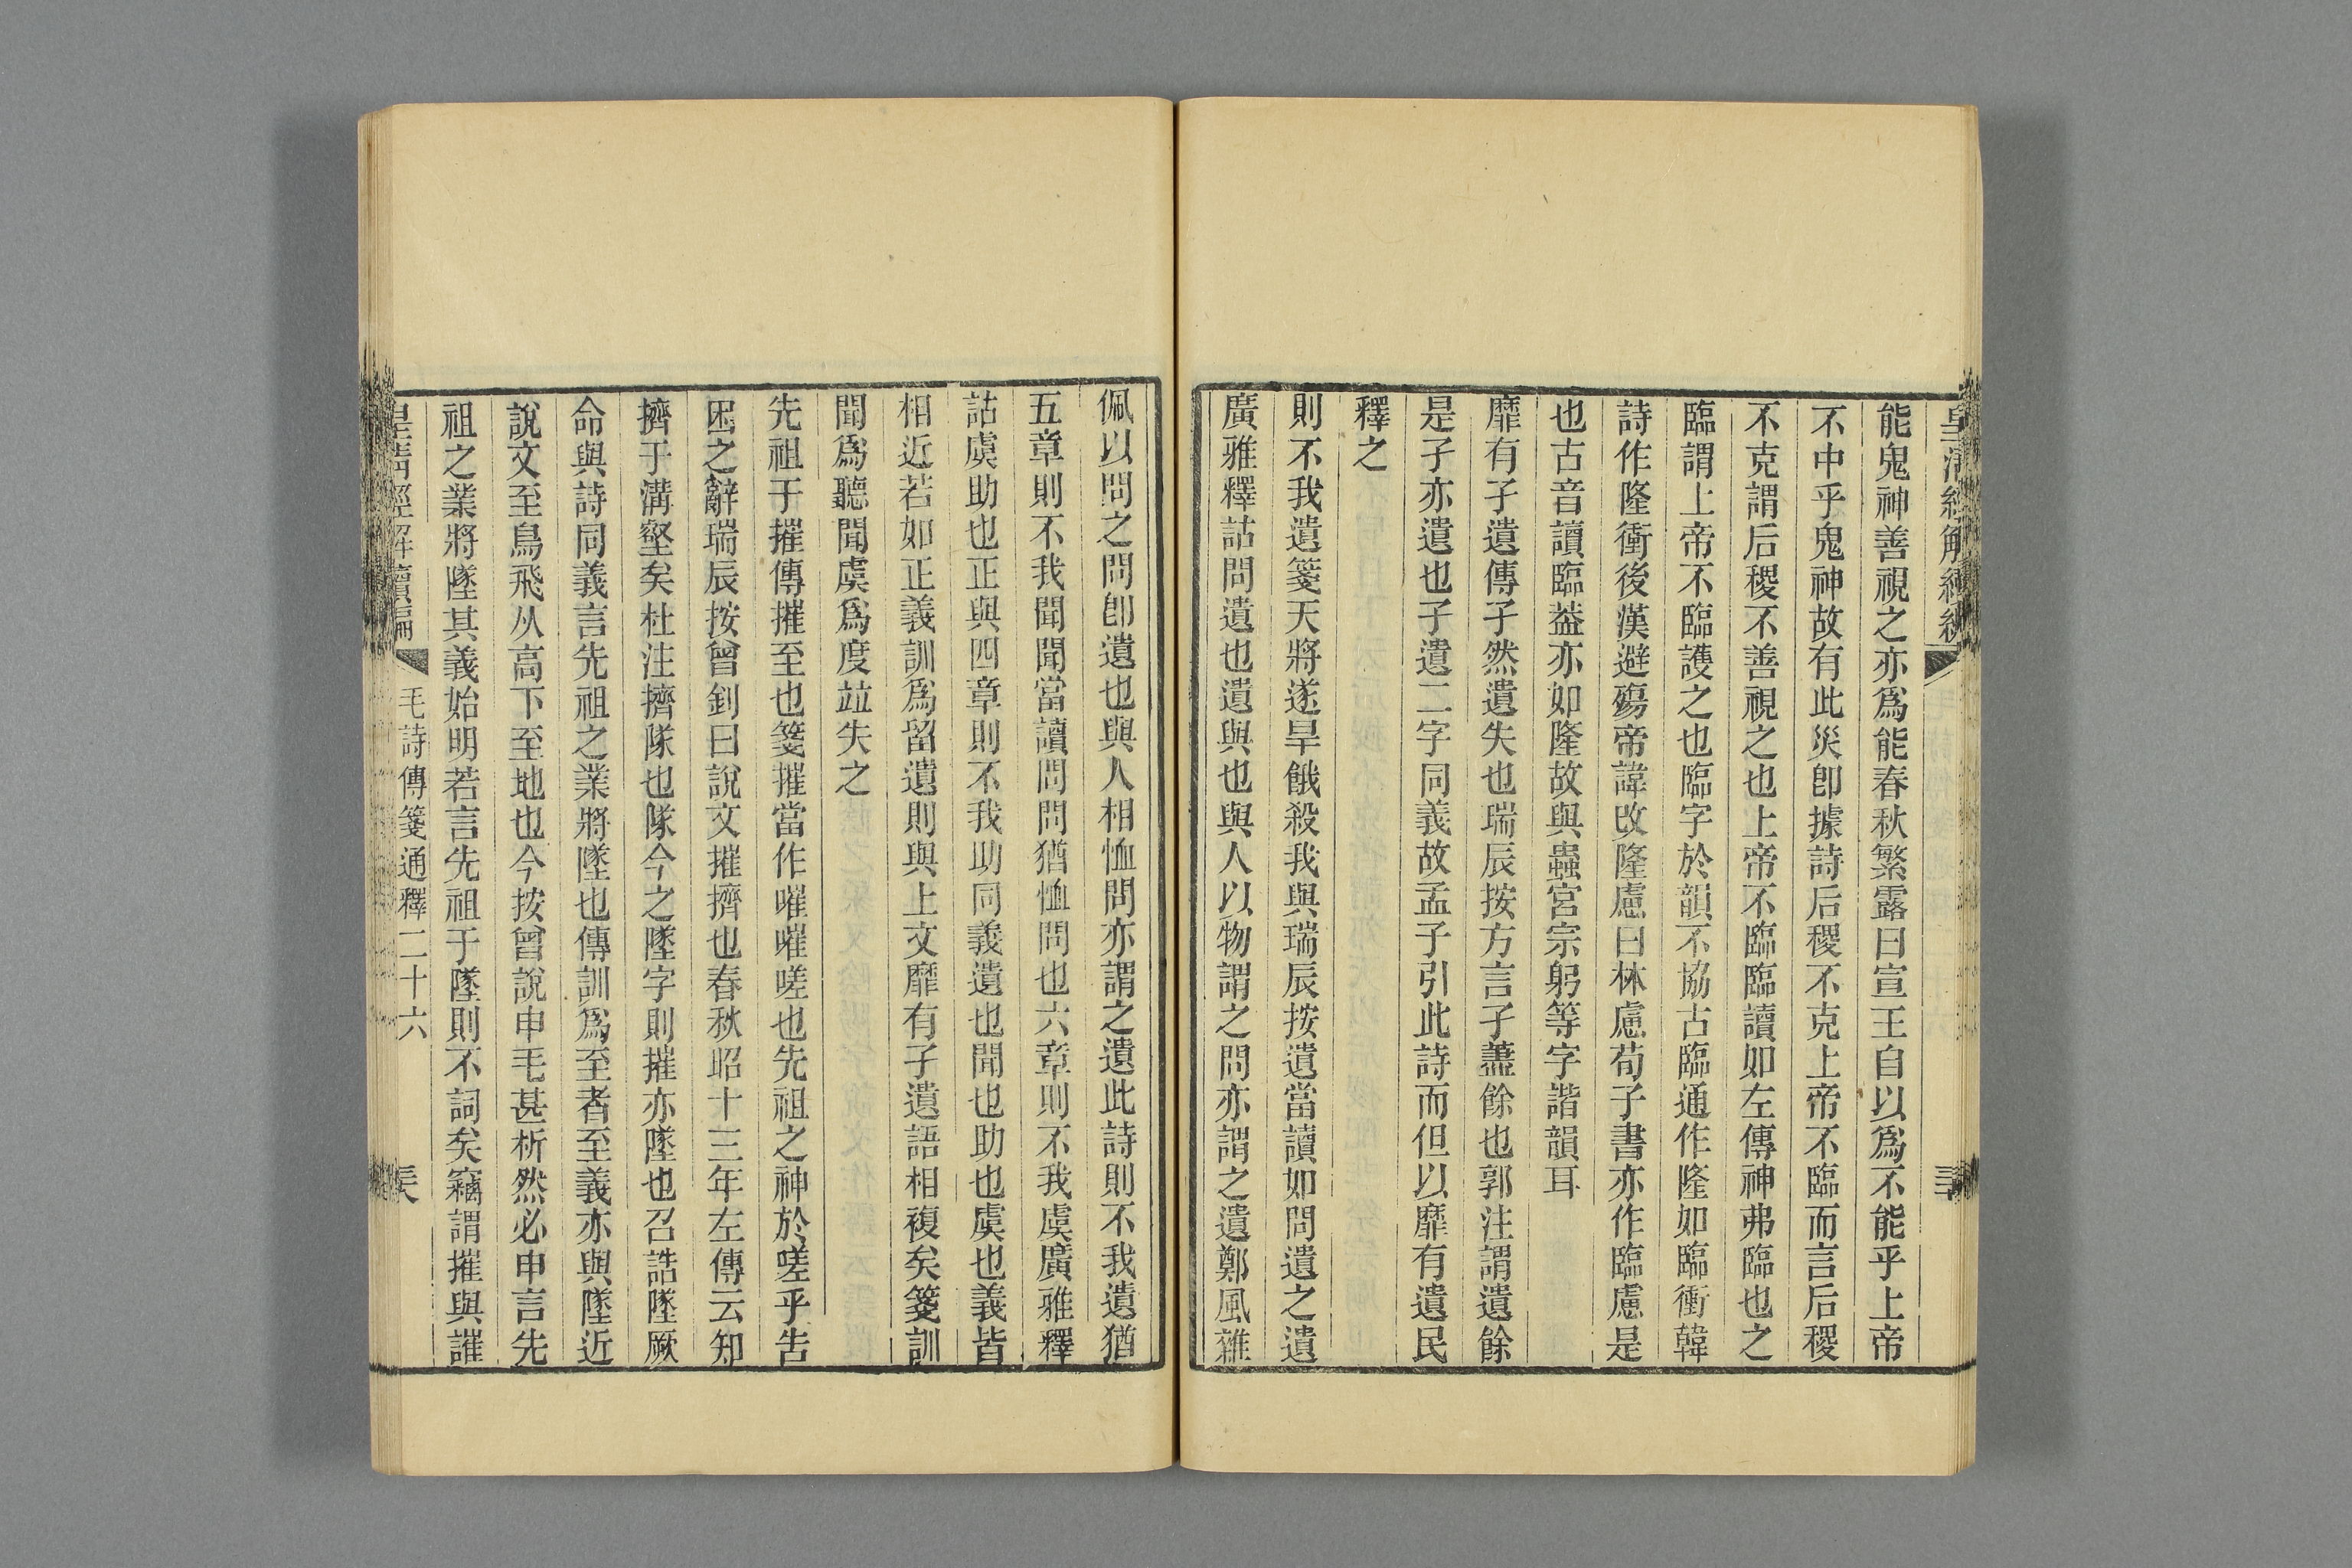 能鬼神善視之亦爲能春秋繁露曰宣王自以爲不能乎上帝
不中乎鬼神故有此災卽據詩后稷不克上帝不臨而言后稷
不克謂后稷不善視之也上帝不臨臨讀如左傳神弗臨也之
臨謂上帝不臨護之也臨字於韻不協古臨通作隆如臨衝韓
詩作隆衝後漢避殤帝諱改隆慮曰林慮荀子書亦作臨慮是
也古音讀臨葢亦如隆故與蟲宮宗躬等字諧韻耳
靡有孑遺傳孑然遺失也瑞辰按方言孑藎餘也郭注謂遺餘
是孑亦遺也孑遺二字同義故孟子引此詩而但以靡有遺民
釋之
則不我遺箋天將遂旱餓殺我與瑞辰按遺當讀如問遺之遺
廣雅釋詁問遺也遺與也與人以物謂之問亦謂之遺鄭風雜
佩以問之問卽遺也與人相恤問亦謂之遺此詩則不我遺猶
五章則不我聞聞當讀問問猶恤問也六章則不我虞廣雅釋
詁虞助也正與四章則不我助同義遺也聞也助也虞也義皆
相近若如正義訓爲留遺則與上文靡有孑遺語相複矣箋訓
聞爲聽聞虞爲度竝失之
先祖于摧傳摧至也箋摧當作嗺嗺嗟也先祖之神於嗟乎告
困之辭瑞辰按曾釗曰說文摧擠也春秋昭十三年左傳云知
擠于溝壑矣杜注擠隊也隊今之墜字則摧亦墜也召誥墜厥
命與詩同義言先祖之業將墜也傳訓爲至者至義亦與墜近
說文至鳥飛从高下至地也今按曾說申毛甚析然必申言先
祖之業將墜其義始明若言先祖于墜則不詞矣竊謂摧與誰
皇淸經解續編　毛詩傳箋通釋二十六